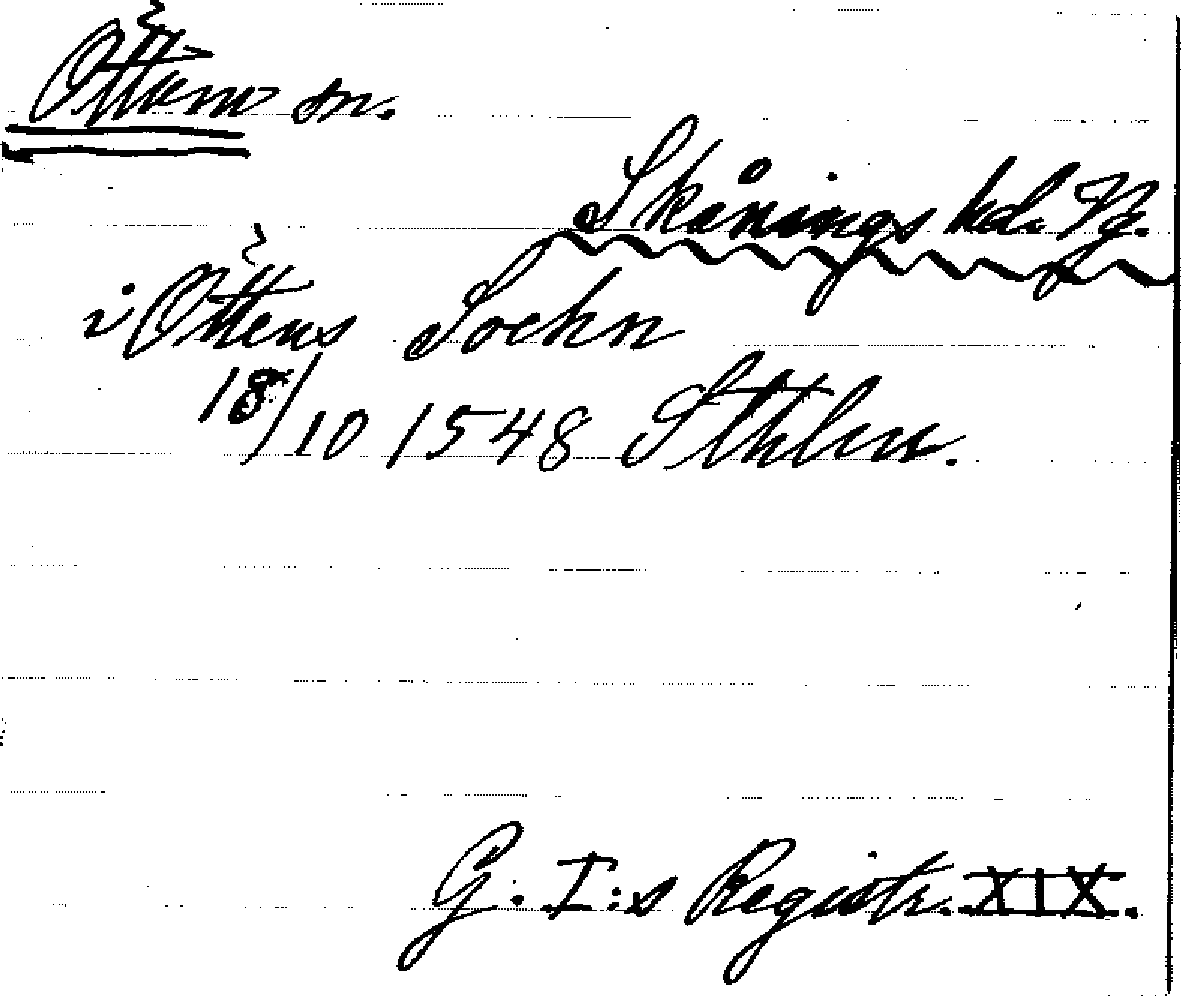 Öttum sn.
Skånings hd. Vg.
i Öttens Sochn
18/10 1548 Sthlm.
G. I:s Registr. XIX.